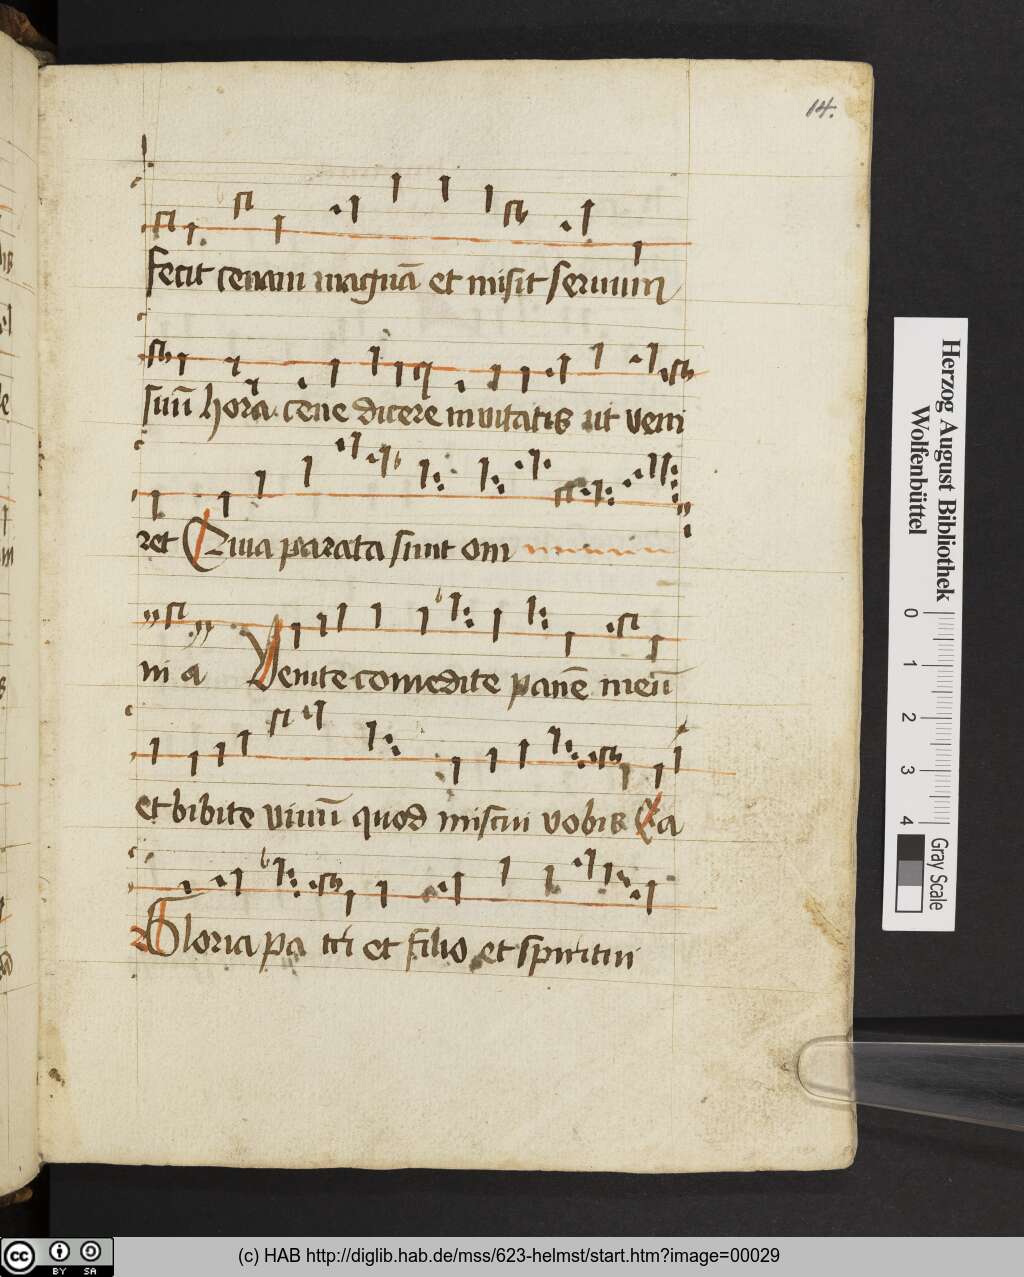 14.
fecit cenam magnā et misit seruum
suū hora cene dicere inuitatis ut veni
ret Quia parata sunt om
ni a Venite comedite panē meū
et bibite vinū quod miscui vobis Qa
Gloria pa tri et filio et spiritui
Herzog August Bibliothek
Wolfenbüttel
0 1 2 3 4
Gray Scale
cc BY SA
(c) HAB http://diglib.hab.de/mss/623-helmst/start.htm?image=00029